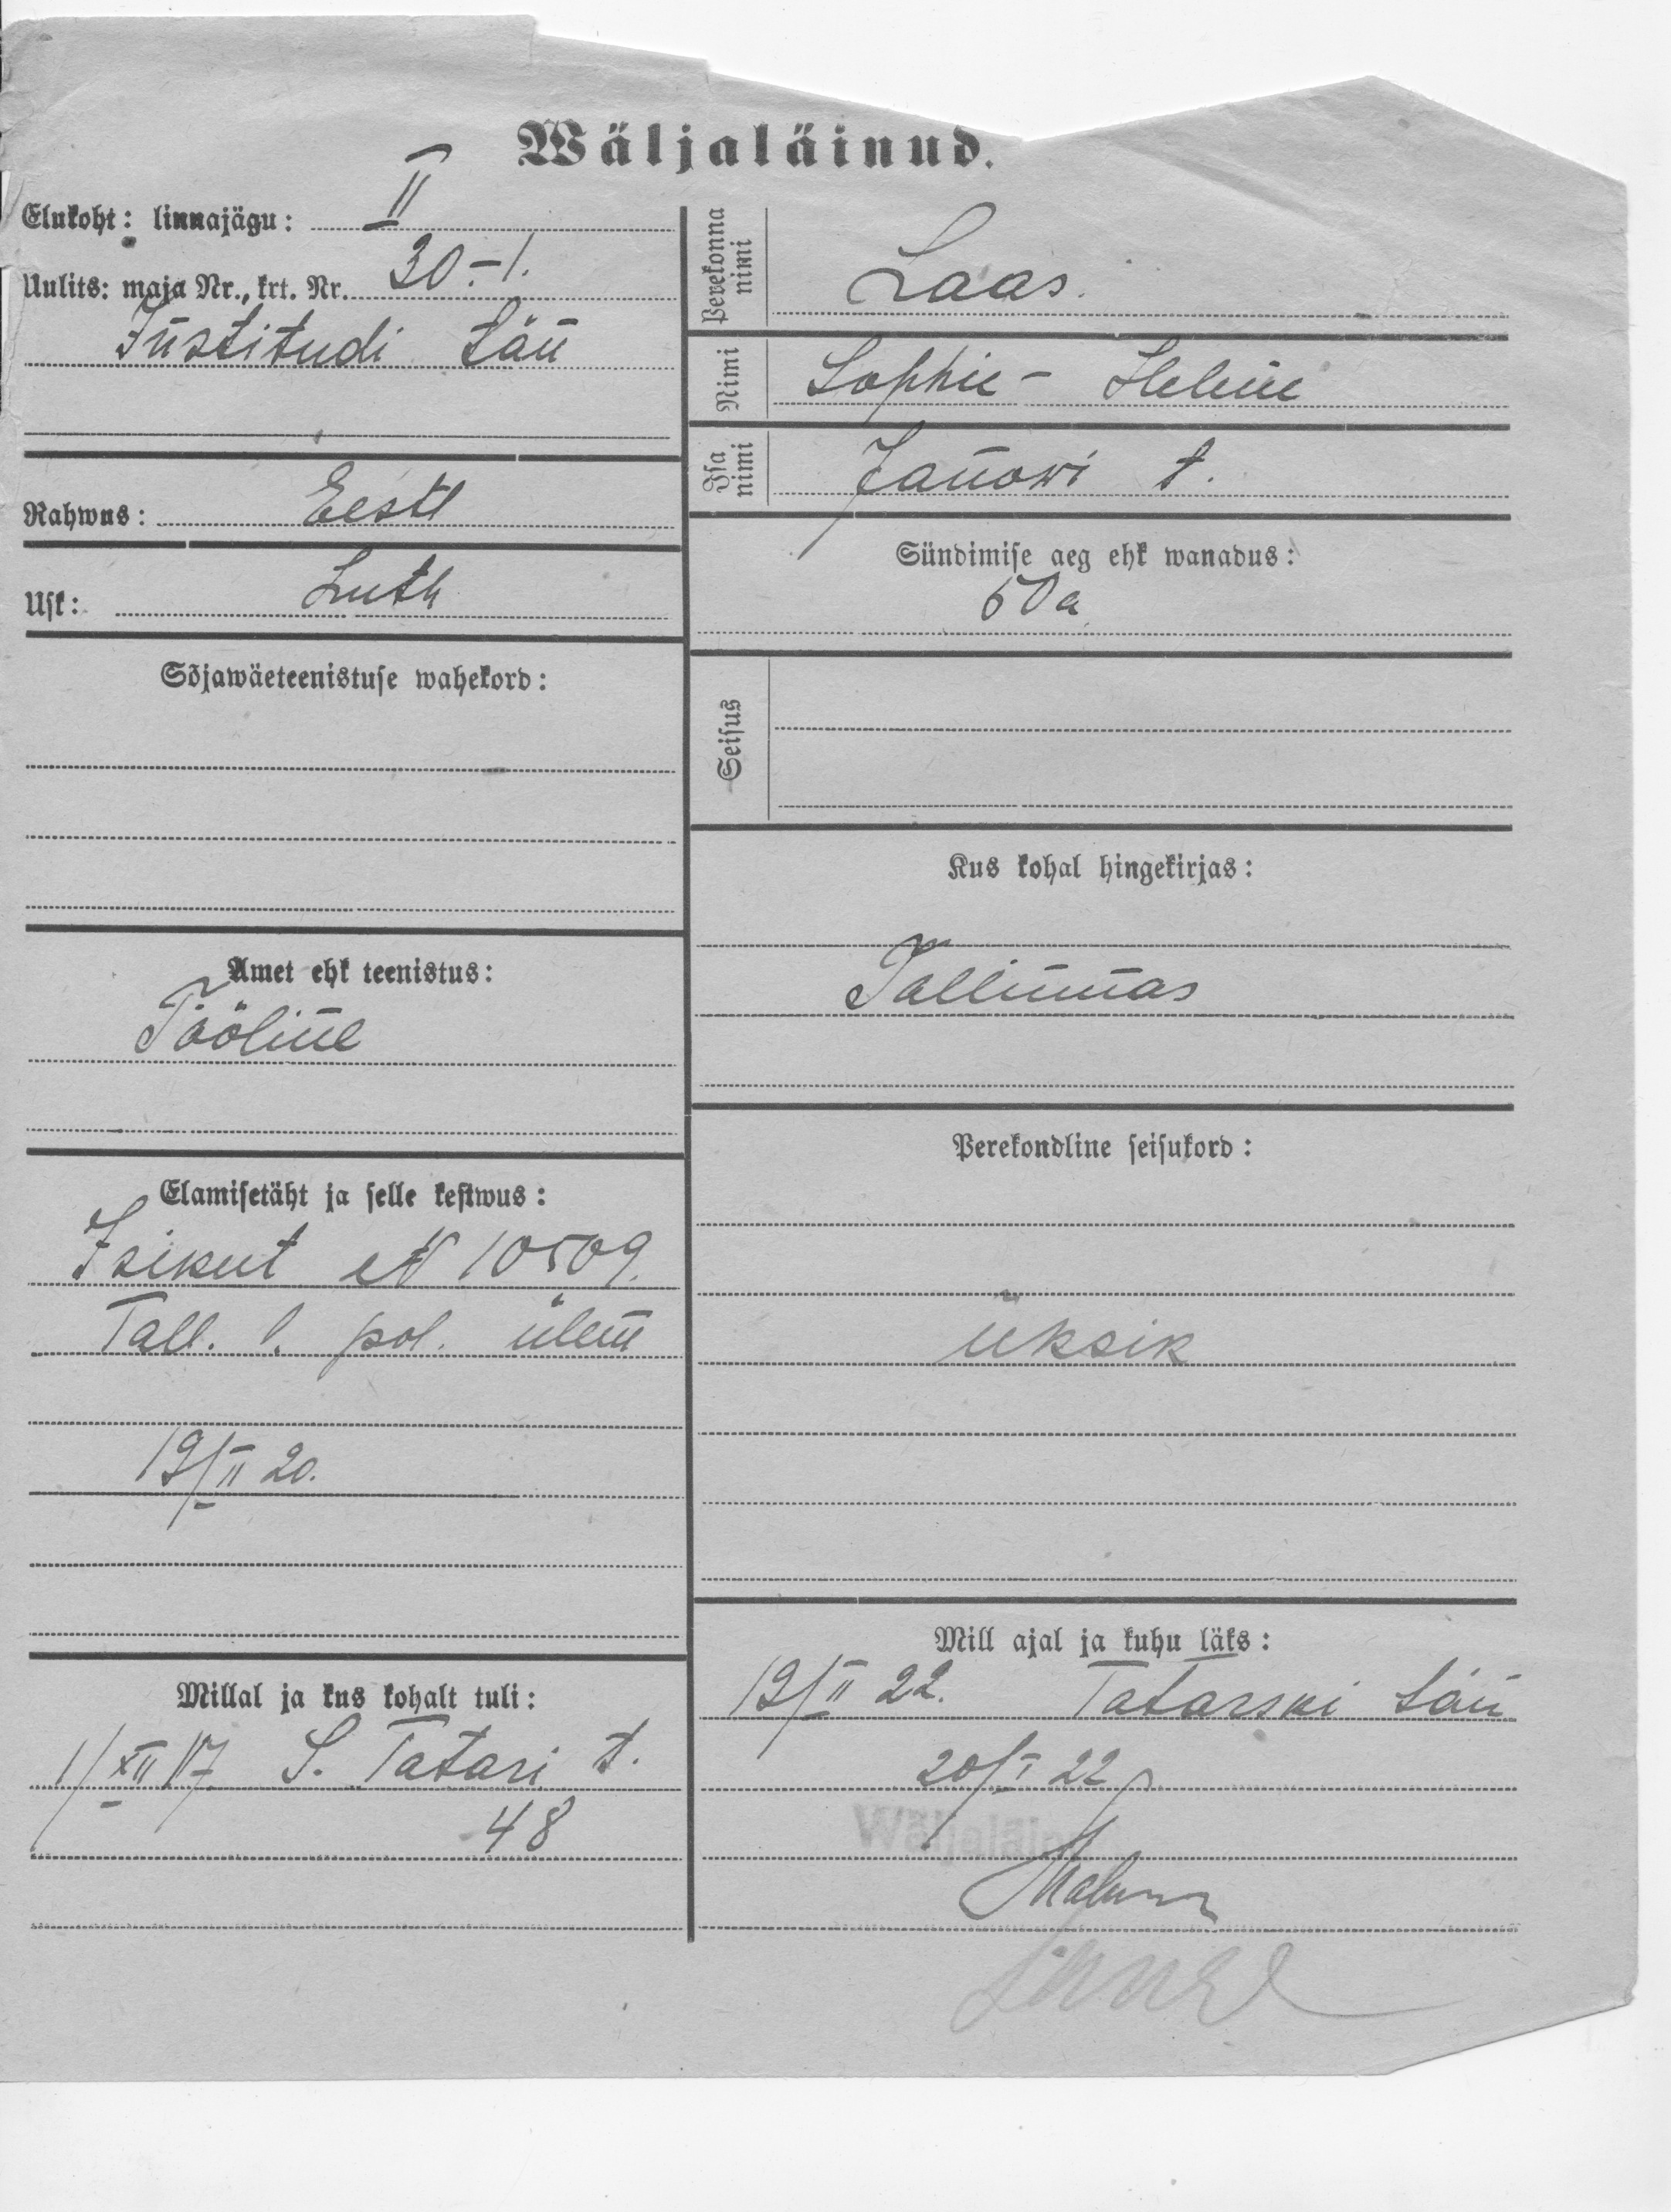 Wäljaläinud.
Elukoht: linnajägu: II
Uulits: maja Nr., krt. Nr. 30-1.
Institudi tän
Rahwus: Eesti
Usk: Luth
Sõjawäeteenistuse wahekord:
Amet ehk teenistus:
Tööline
Elamisetäht ja selle kestwus:
Isikut № 10509.
Tall. l. pol. ülem
19/II 20.
Millal ja kus kohalt tuli:
1/XII 17 S. Tatari t.
48
Perekonna nimi Laas.
Nimi Sophie - Helene
Isa nimi Janowi t.
Sündimise aeg ehk wanadus:
60 a
Seisus
Kus kohal hingekirjas:
Tallinnas
Perekondline seisukord:
üksik
Mill ajal ja kuhu läks:
19/II 22. Tatarski tän
20/I 22